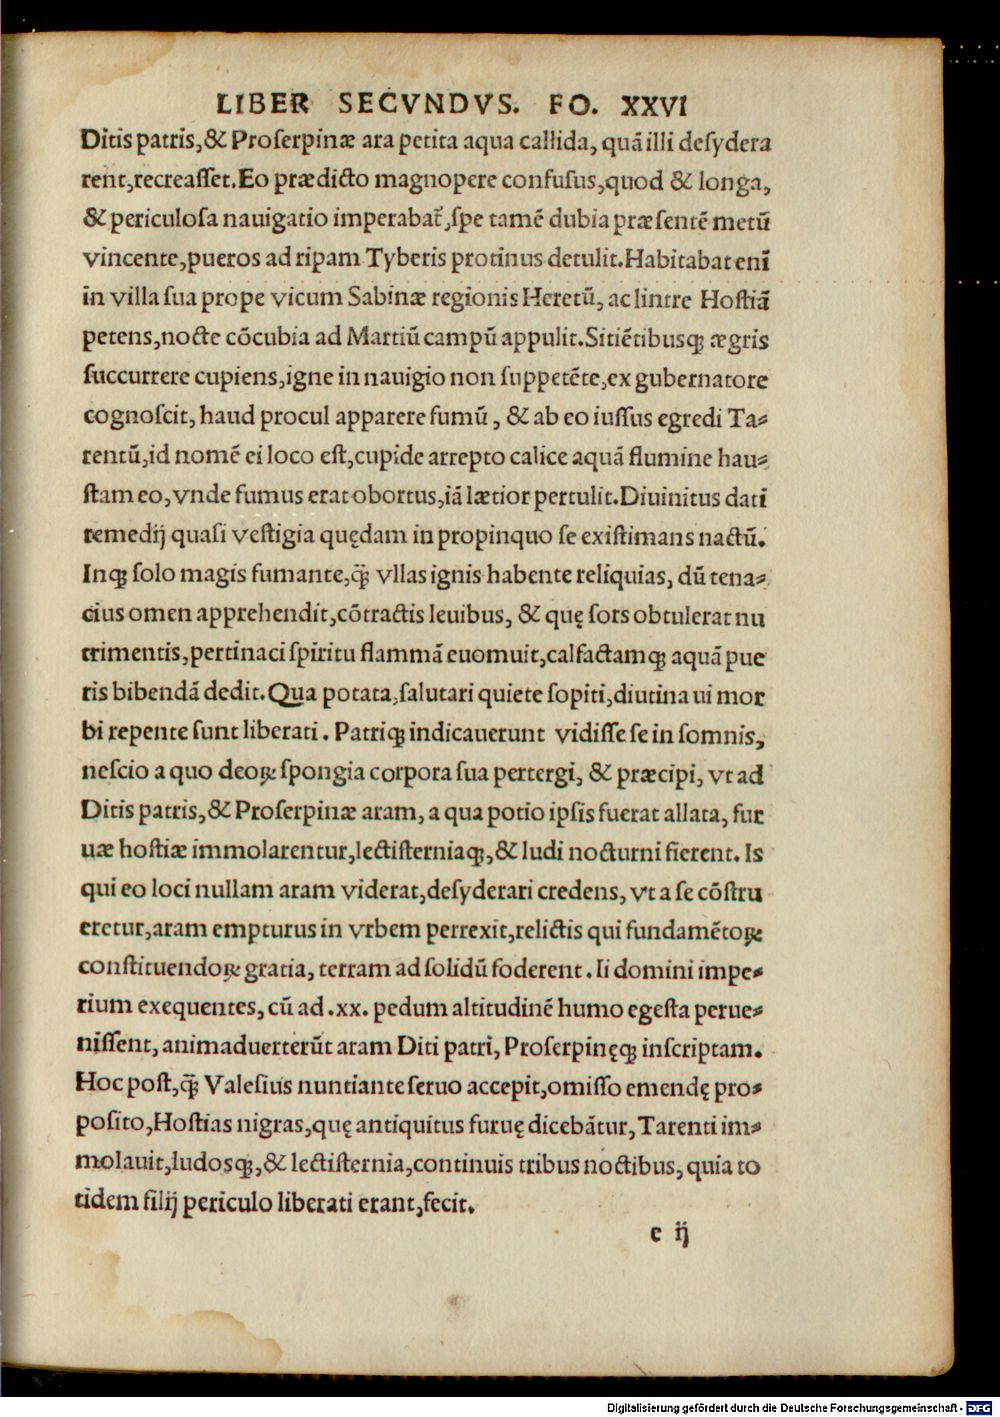 LIBER SECVNDVS. FO. XXVI
Ditis patris,& Proſerpinæ ara petita aqua callida, quā illi deſydera
rent,recreaſſet.Eo prædicto magnopere confuſus,quod & longa,
& periculoſa nauigatio imperabat᷒,ſpe tamē dubia præſentē metū
vincente,pueros ad ripam Tyberis protinus detulit.Habitabat enī
in villa ſua prope vicum Sabinæ regionis Heretū, ac lintre Hoſtiā
petens,nocte cōcubia ad Martiū campū appulit.Sitiētibusqꝫ ægris
ſuccurrere cupiens,igne in nauigio non ſuppetēte,ex gubernatore
cognoſcit, haud procul apparere fumū, & ab eo iuſſus egredi Ta⸗
rentū,id nomē ei loco eſt,cupide arrepto calice aquā flumine hau⸗
ſtam eo,vnde fumus erat obortus,iā lætior pertulit.Diuinitus dati
remedij quaſi veſtigia quędam in propinquo ſe exiſtimans nactū.
Inqꝫ ſolo magis fumante,q̄ꝫ vllas ignis habente reliquias, dū tena⸗
cius omen apprehendit,cōtractis leuibus, & quę ſors obtulerat nu
trimentis,pertinaci ſpiritu flammā euomuit,calfactamqꝫ aquā pue
ris bibendā dedit.Qua potata,ſalutari quiete ſopiti,diutina ui mor
bi repente ſunt liberati. Patriqꝫ indicauerunt vidiſſe ſe in ſomnis,
neſcio a quo deoꝝ ſpongia corpora ſua pertergi, & præcipi, vt ad
Ditis patris,& Proſerpinæ aram, a qua potio ipſis fuerat allata, fur
uæ hoſtiæ immolarentur,lectiſterniaqꝫ,& ludi nocturni fierent. Is
qui eo loci nullam aram viderat,deſyderari credens, vt a ſe cōſtru
eretur,aram empturus in vrbem perrexit,relictis qui fundamētoꝝ
conſtituendoꝝ gratia, terram ad ſolidū foderent. Ii domini impe⸗
rium exequentes, cū ad .xx. pedum altitudinē humo egeſta perue⸗
niſſent, animaduerterūt aram Diti patri, Proſerpinęqꝫ inſcriptam.
Hoc poſt,q̄ꝫ Valeſius nuntiante ſeruo accepit,omiſſo emendę pro⸗
poſito,Hoſtias nigras,quę antiquitus furuę dicebātur, Tarenti im⸗
molauit,ludosqꝫ,& lectiſternia,continuis tribus noctibus, quia to
tidem filij periculo liberati erant,fecit.
c ij
Digitalisierung gefördert durch die Deutsche Forschungsgemeinschaft - DFG